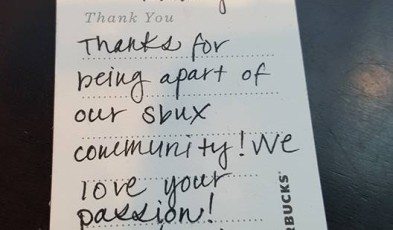 Thank You
Thanks for
being apart of
our sbux
community! We
love your
passion!
RBUCKS